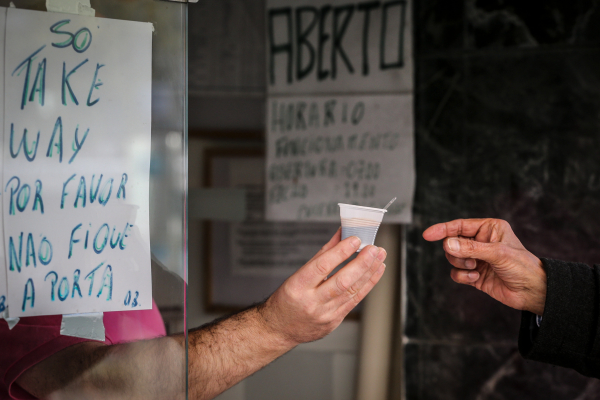 SO
TAKE
WAY
POR FAVOR
NAO FIQUE
A PORTA
ABERTO
HORARIO
FUNCIONAMENTO